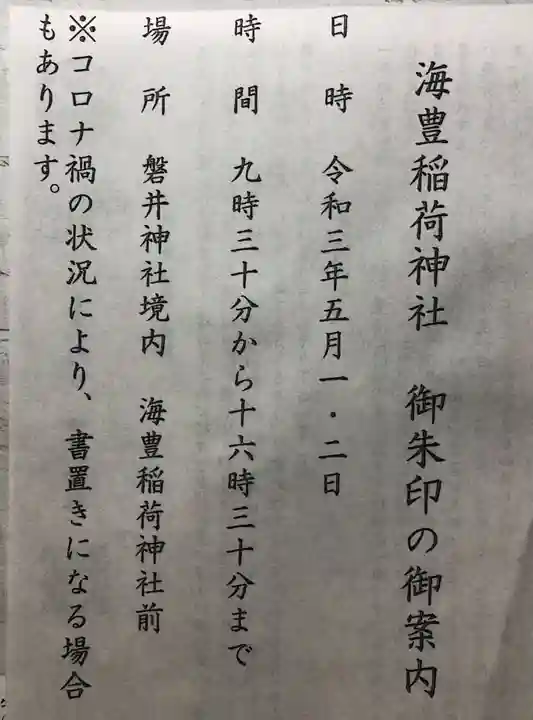 海豊稲荷神社　御朱印の御案内
日　時　令和三年五月一・二日
時　間　九時三十分から十六時三十分まで
場　所　磐井神社境内　海豊稲荷神社前
※コロナ禍の状況により、書置きになる場合
もあります。